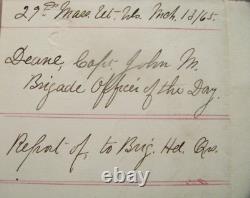 29th Mass Vet. Vols. Mch. 13/65.
Deane, Capt. John M.
Brigade Officer of the Day.
Report of, to Brig. Hd. Qrs.